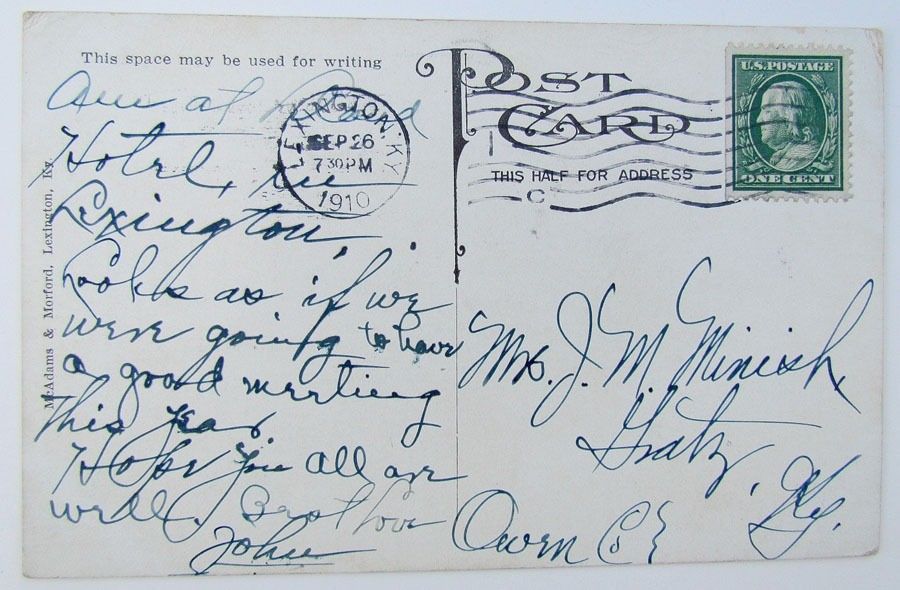 This space may be used for writing
Am at
Hotel, in
Lexington,
Looks as if we
were going to have
a good meeting
this year
Hope you all are
well. Best love
John
McAdams & Morford, Lexington, Ky.
LEXINGTON, KY.
SEP 26
7 30 PM
1910
POST
CARD
THIS HALF FOR ADDRESS
C
U.S. POSTAGE
ONE CENT
Mrs. J. M. Minish,
Gratz,
Ky.
Owen Co